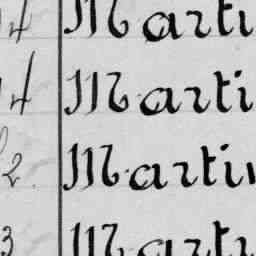 4 Marti
4 Marti
2 Marti
3 Marti